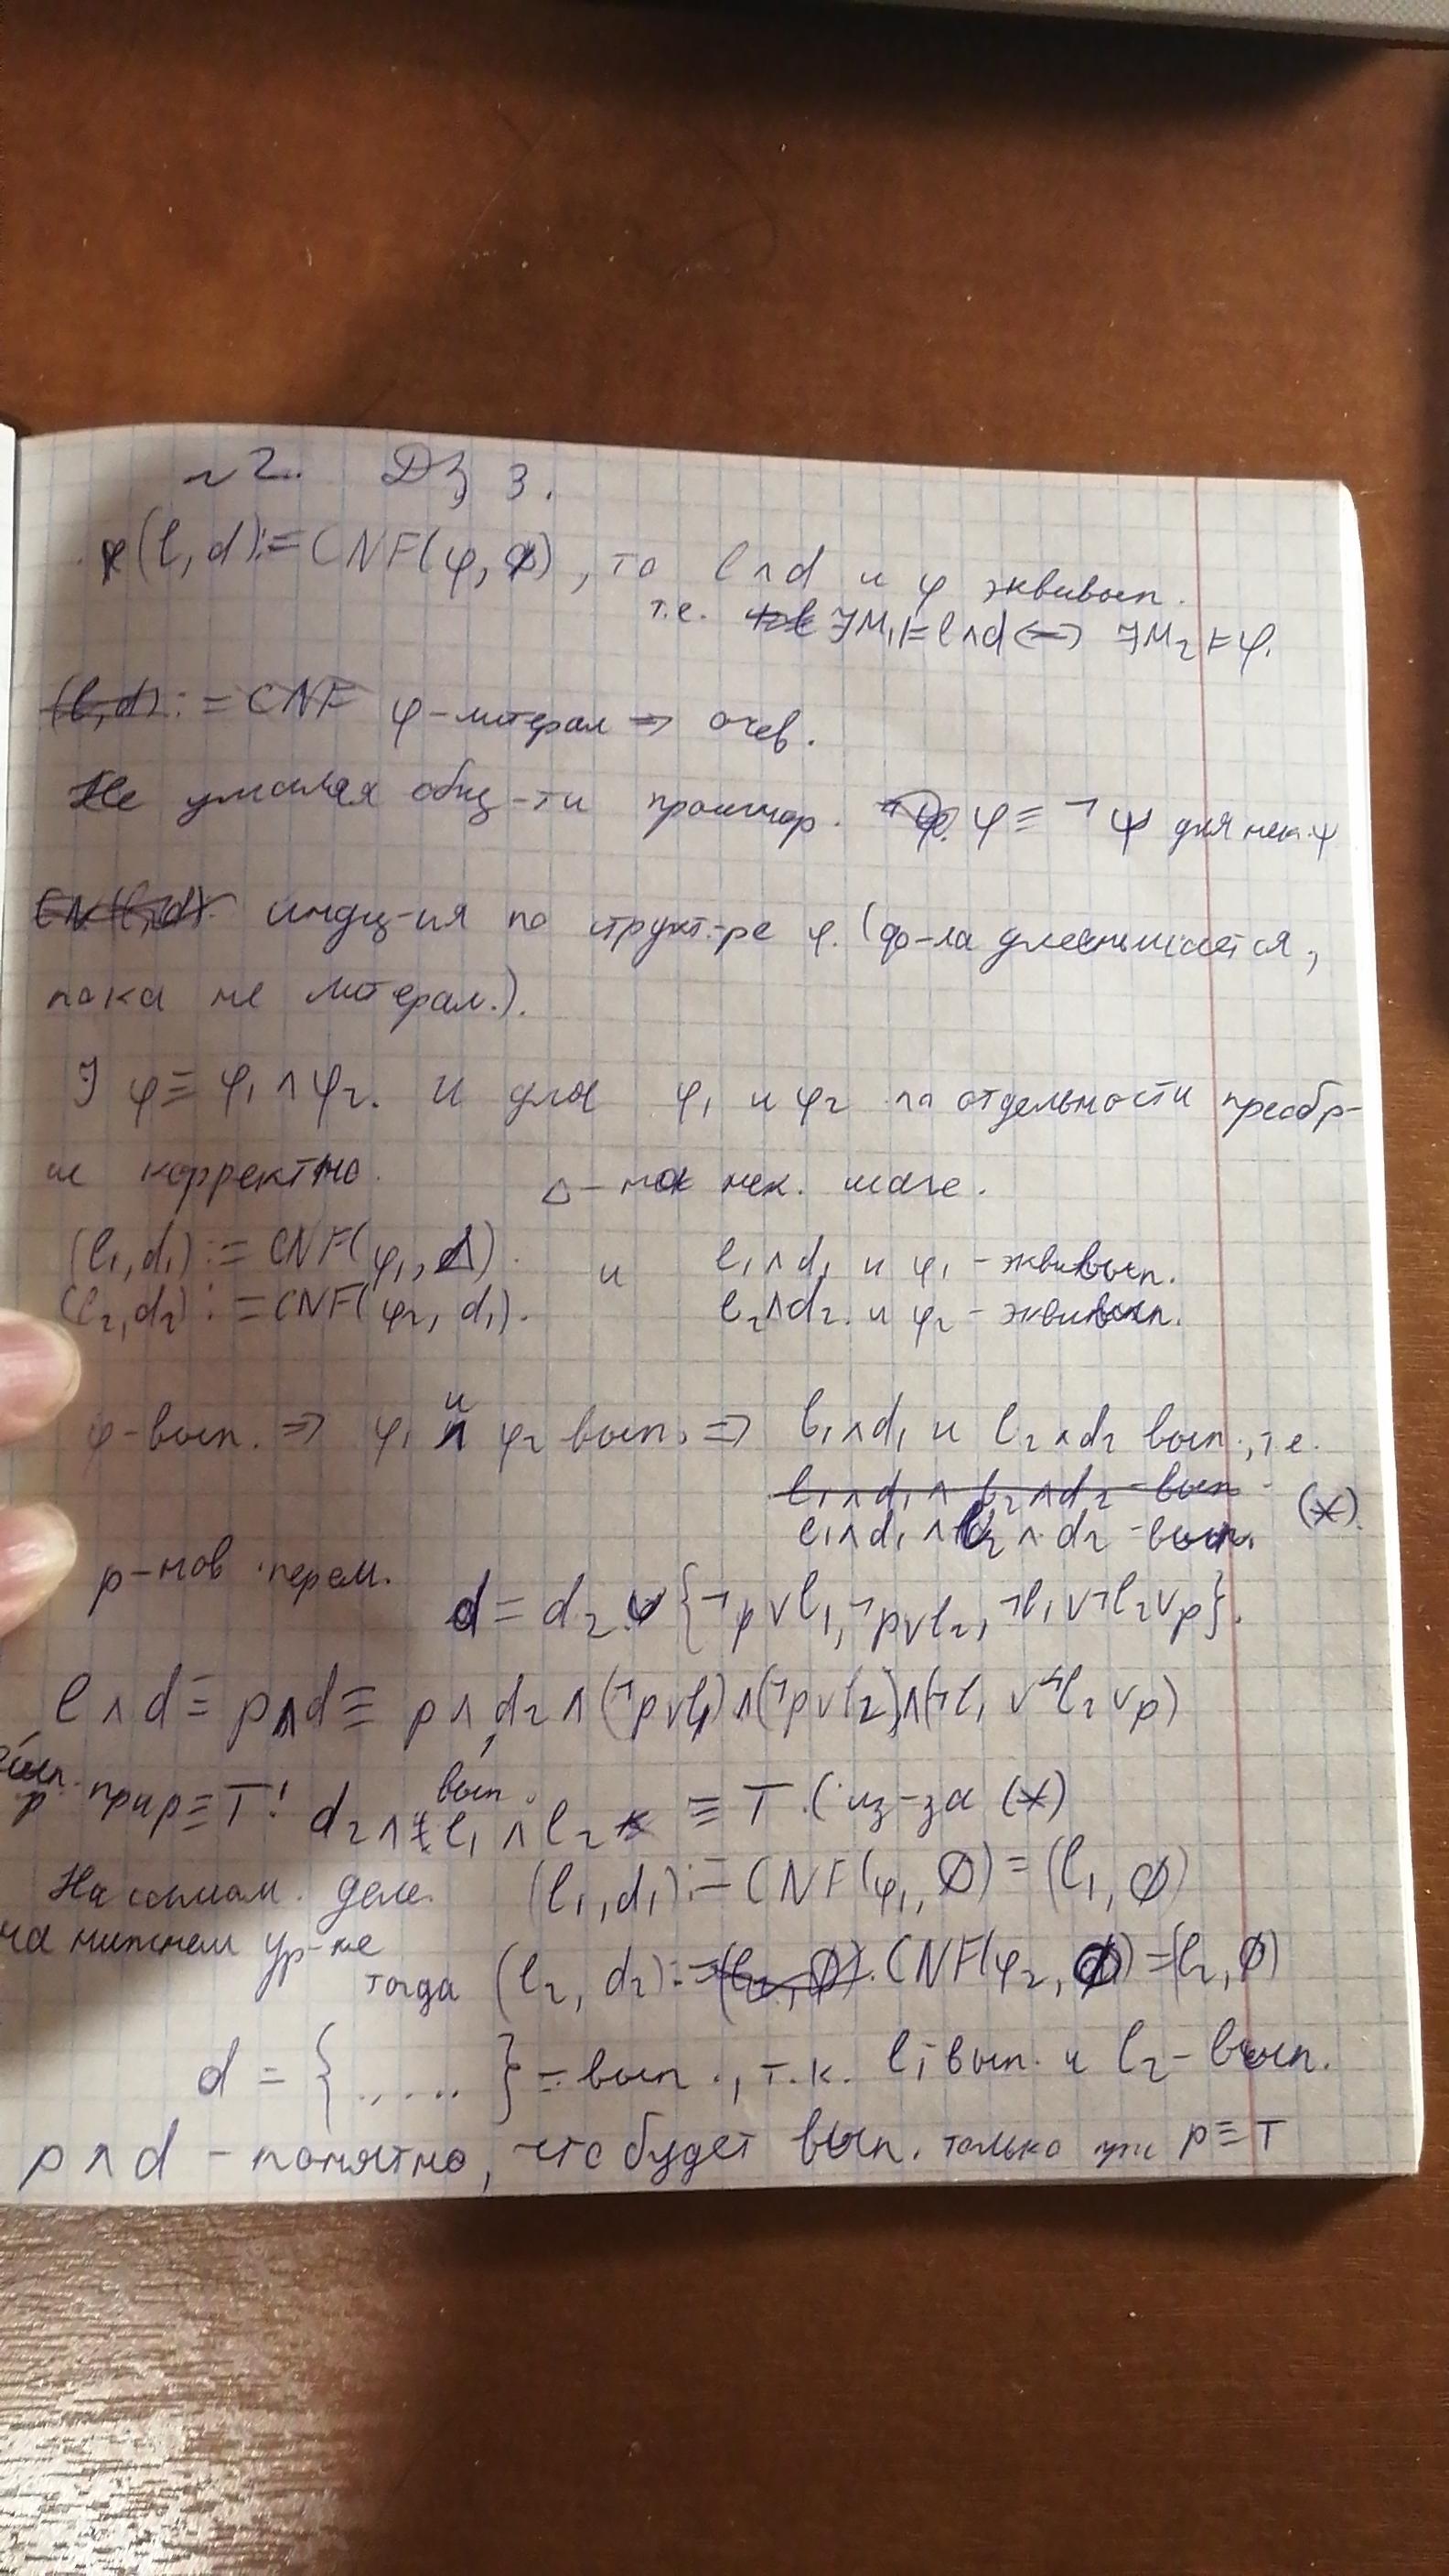 №2. ДЗ 3.
(l, d):=CNF(φ, ∅), то l∧d и φ эквивып.
т.е. ∃M₁⊨l∧d⟺ ∃M₂⊨φ.
(l,d):=CNF φ-литерал ⇒ очев.
Не умаляя общ-ти φ≡¬ψ для нек. ψ
индук-ия по структ-ре φ. (ф-ла уменьшается,
пока не литерал.).
∃ φ≡ φ₁∧φ₂. И для φ₁ и φ₂ по отдельности преобр-
ие корректно. Δ- на нек. шаге.
(l₁,d₁):= CNF(φ₁,Δ). и l₁∧d₁ и φ₁-эквивып.
(l₂,d₂):=CNF(φ₂, d₁). l₂∧d₂. и φ₂-эквивып.
φ-вып. ⇒ φ₁ и φ₂ вып. ⇒ l₁∧d₁ и l₂∧d₂ вып., т.е.
l₁∧d₁∧l₂∧d₂-вып
l₁∧d₁∧l₂∧d₂-вып. (*).
p-нов. перем.
d = d₂ ∪ {¬p∨l₁, ¬p∨l₂, ¬l₁∨¬l₂∨p}.
l∧d≡ p∧d≡ p∧d₂∧(¬p∨l₁)∧(¬p∨l₂)∧(¬l₁∨¬l₂∨p)
вып. при p≡T! d₂∧l₁∧l₂ вып. ≡ T.(из-за (*)
На самом. деле. (l₁,d₁):=CNF(φ₁,∅)=(l₁,∅)
на нижнем ур-не
тогда (l₂, d₂):=(l₂,∅). CNF(φ₂,∅)=(l₂,∅)
d = {.,....} - вып., т.к. l₁-вып. и l₂-вып.
p∧d - понятно, что будет вып. только при p≡T